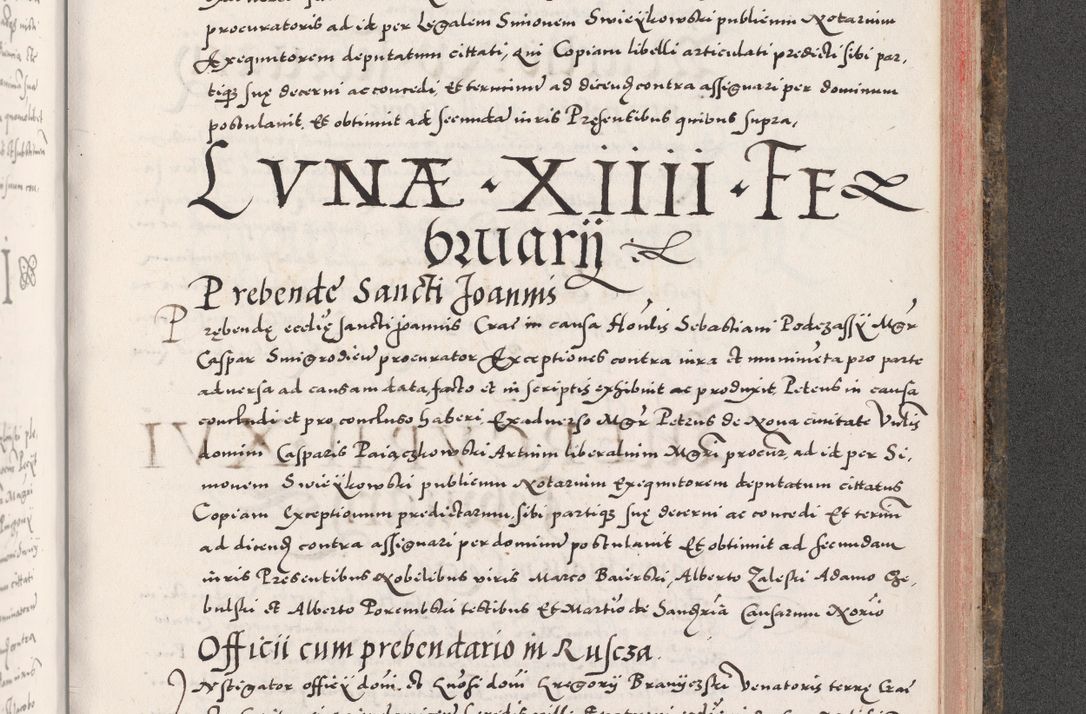 procuratoris ad id per legalem Simonem Swieykowski publicum Notarium
Exequutorem deputatum cittati, qui Copiam libelli articulati predicti sibi par,
tiq3 suę decerni ac concedi, Et terminū ad dicend contra assignari per dominum
postulavit, Et obtinuit ad secundā iuris Pręsentibus quibus supra,
LVNÆ · XIIII · FE
bruarij
Prebende Sancti Joannis
Prębendę eccłię sancti Joannis Crac̄ in causa Hon̄lis Sebastiani Podczassy Mgr̄
Caspar Smigrodien̄ procurator Exceptiones contra iura et munimēta pro parte
adversa ad causam data, facto et in scriptis exhibuit ac produxit, Petens in causa
concludi et pro concluso haberi, Ex adverso Mgr̄ Petrus de Nova civitate
domini Casparis Paiączkowski Artium liberalium Mgr̄i procur̄, ad id per Si,
monem Swieykowski publicum Notarium Exequutorem deputatum cittatus
Copiam Exceptionum predictarum, sibi partiq3 suę decerni ac concedi Et termi
ad dicend contra assignari per dominū postulavit Et obtinuit ad secundam
iuris Presentibus Nobilibus viris Marco Baierski, Alberto Zaleski Adamo
bulski et Alberto Porembski testibus Et Martio de Causarum Nōrio
Officii cum prebendario in Ruscza
Instigator officij dom̄i, et dom̄i Gregorij Braniczski Venatoris terrę Crac̄